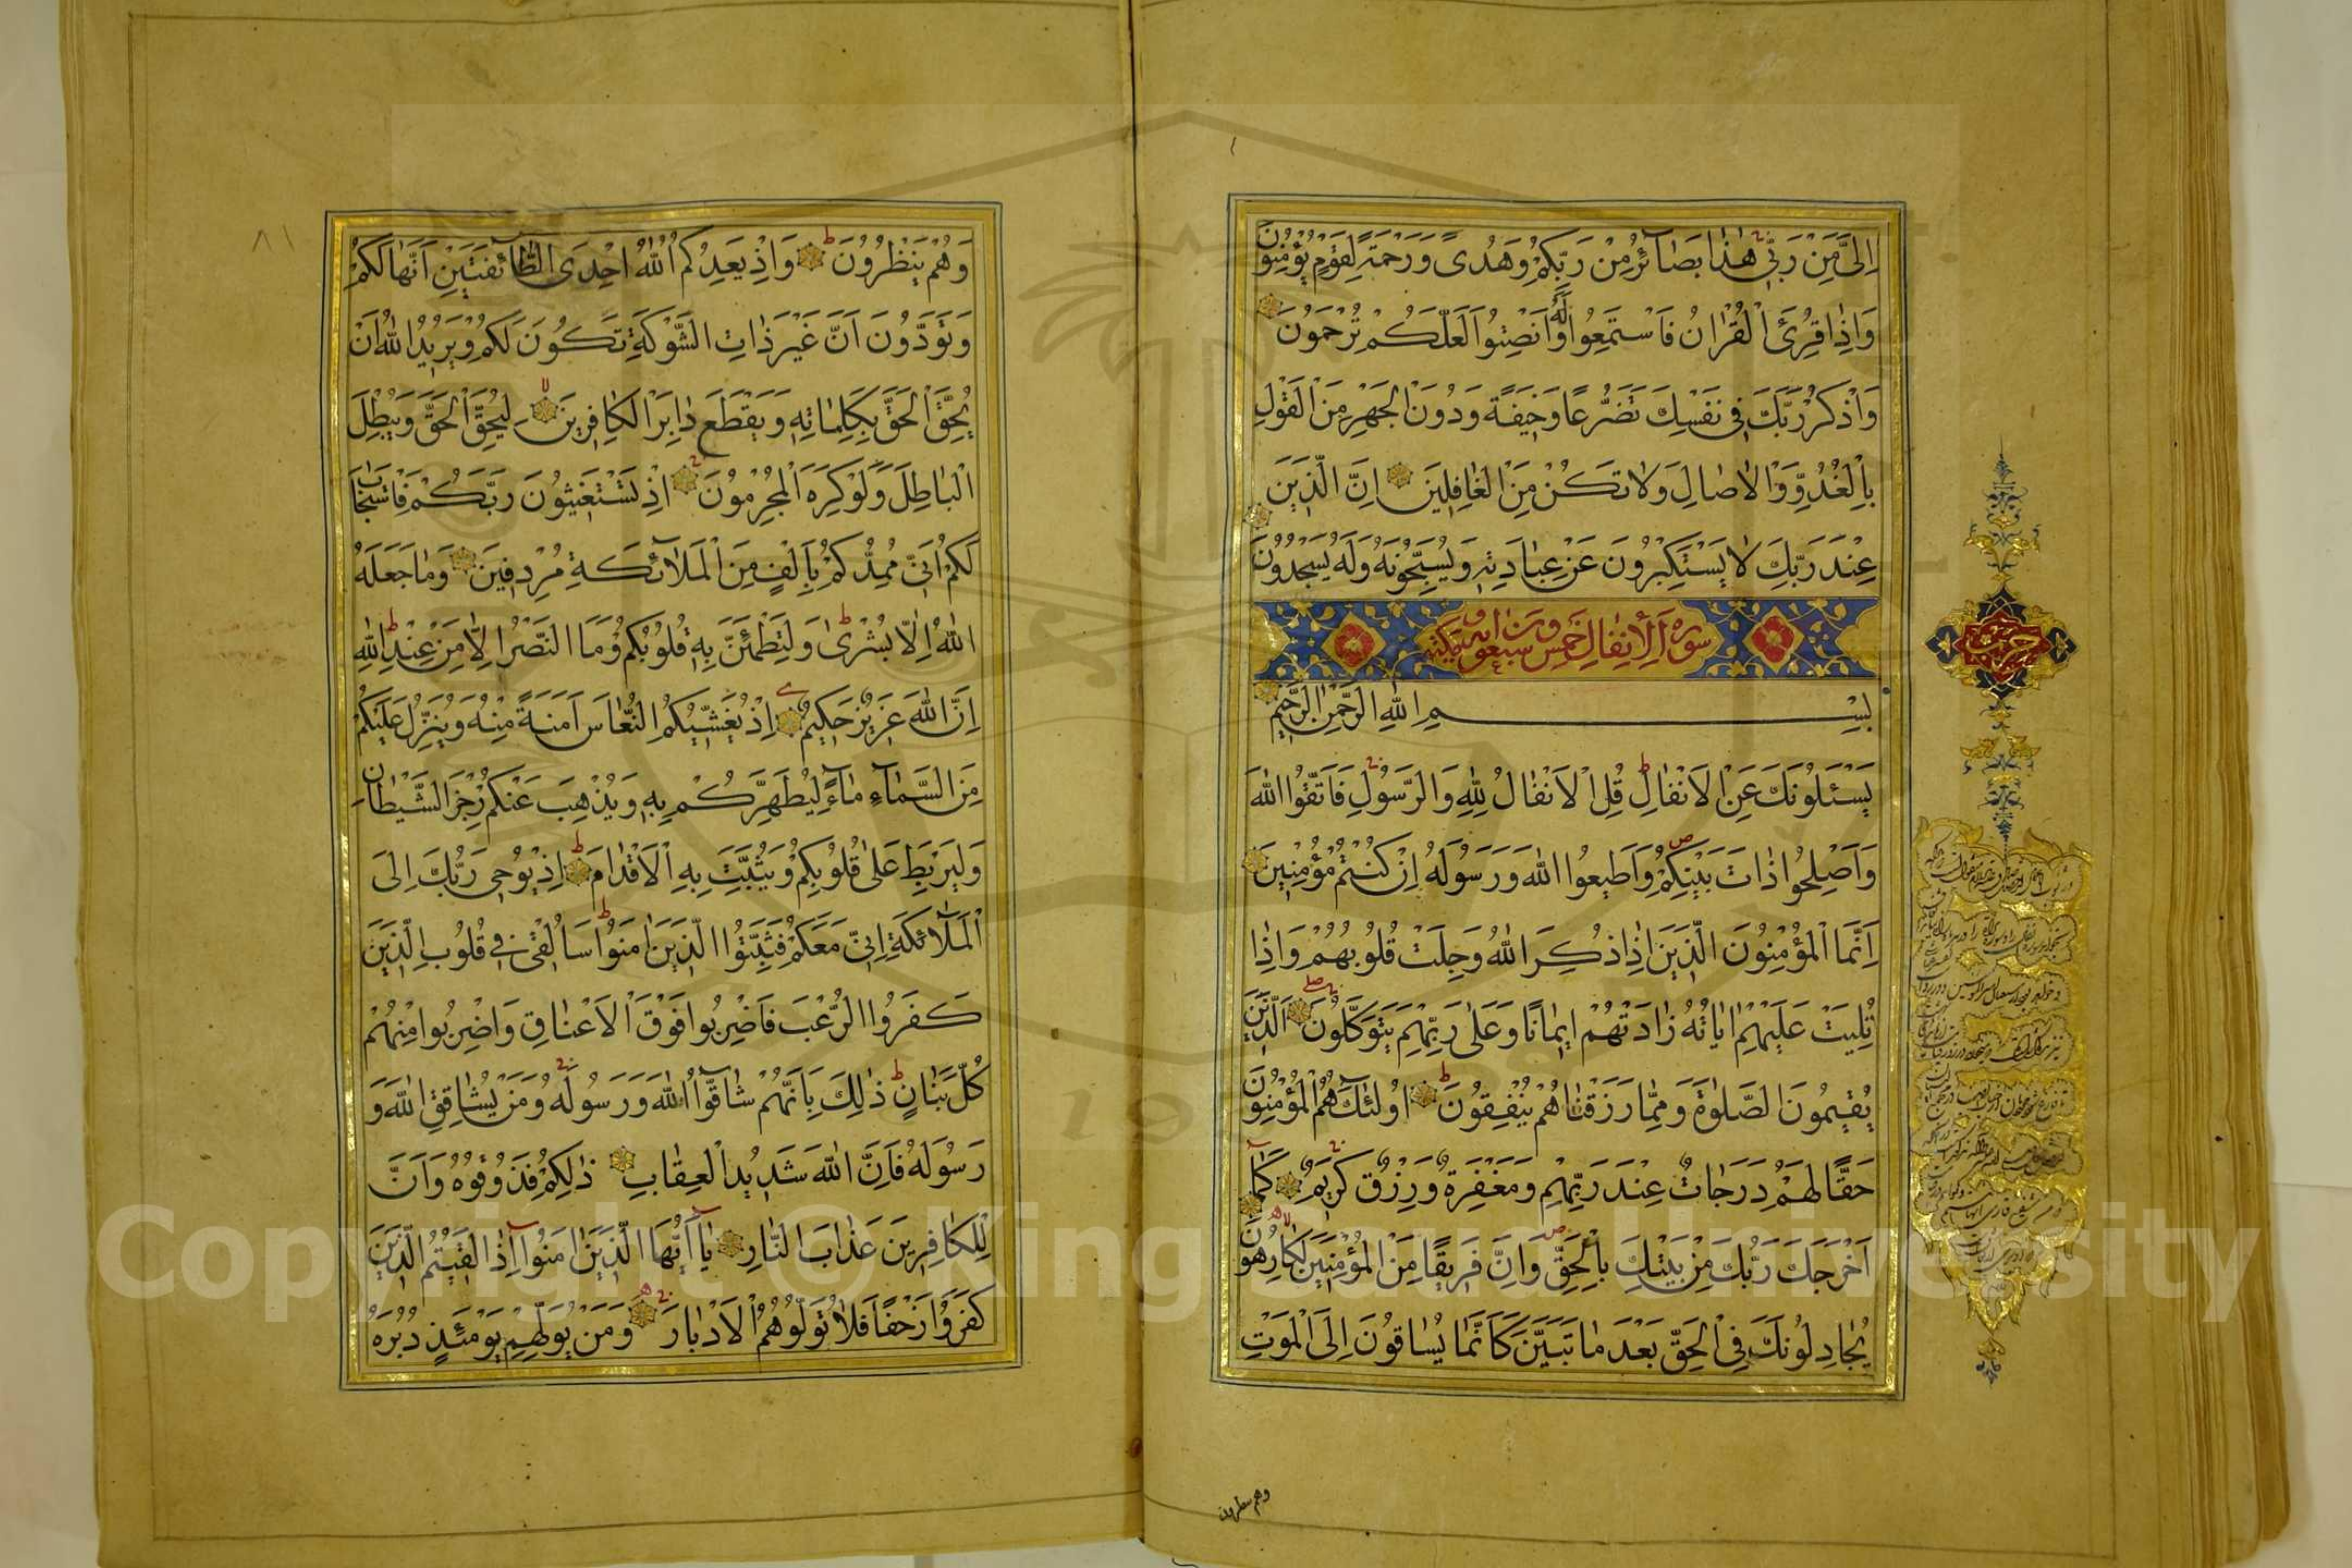 اِلَىَّ مِنْ رَبِّى هٰذا بَصَآئِرُ مِنْ رَبِّكُمْ وَهُدىً وَرَحْمَةٌ لِقَوْمٍ يُؤْمِنُونَ
وَاِذا قُرِئَ الْقُرْانُ فَاسْتَمِعُوا لَهُ وَاَنْصِتُوا لَعَلَّكُمْ تُرْحَمُونَ
وَاذْكُرْ رَبَّكَ فى نَفْسِكَ تَضَرُّعًا وَخيفَةً وَدُونَ الْجَهْرِ مِنَ الْقَوْلِ
بِالْغُدُوِّ وَالْاٰصالِ وَلا تَكُنْ مِنَ الْغافِلينَ اِنَّ الَّذينَ
عِنْدَ رَبِّكَ لا يَسْتَكْبِرُونَ عَنْ عِبادَتِه وَيُسَبِّحُونَهُ وَلَهُ يَسْجُدُونَ
سورة الانفال خمس وسبعون اية مكية
بِسْمِ اللهِ الرَّحْمٰنِ الرَّحيمِ
يَسْئَلُونَكَ عَنِ الْاَنْفالِ قُلِ الْاَنْفالُ لِلّٰهِ وَالرَّسُولِ فَاتَّقُوا اللهَ
وَاَصْلِحُوا ذاتَ بَيْنِكُمْ وَاَطيعُوا اللهَ وَرَسُولَهُ اِنْ كُنْتُمْ مُؤْمِنينَ
اِنَّمَا الْمُؤْمِنُونَ الَّذينَ اِذا ذُكِرَ اللهُ وَجِلَتْ قُلُوبُهُمْ وَاِذا
تُلِيَتْ عَلَيْهِمْ اٰياتُهُ زادَتْهُمْ ايمانًا وَعَلى رَبِّهِمْ يَتَوَكَّلُونَ اَلَّذينَ
يُقيمُونَ الصَّلوٰةَ وَمِمَّا رَزَقْناهُمْ يُنْفِقُونَ اُولٰئِكَ هُمُ الْمُؤْمِنُونَ
حَقًّا لَهُمْ دَرَجاتٌ عِنْدَ رَبِّهِمْ وَمَغْفِرَةٌ وَرِزْقٌ كَريمٌ كَمآ
اَخْرَجَكَ رَبُّكَ مِنْ بَيْتِكَ بِالْحَقِّ وَاِنَّ فَريقًا مِنَ الْمُؤْمِنينَ لَكارِهُونَ
يُجادِلُونَكَ فِى الْحَقِّ بَعْدَ ما تَبَيَّنَ كَاَنَّما يُساقُونَ اِلَى الْمَوْتِ
وهم ينظرون
٨١
وَهُمْ يَنْظُرُونَ وَاِذْ يَعِدُكُمُ اللهُ اِحْدَى الطَّآئِفَتَيْنِ اَنَّها لَكُمْ
وَتَوَدُّونَ اَنَّ غَيْرَ ذاتِ الشَّوْكَةِ تَكُونُ لَكُمْ وَيُريدُ اللهُ اَنْ
يُحِقَّ الْحَقَّ بِكَلِماتِه وَيَقْطَعَ دابِرَ الْكافِرينَ لِيُحِقَّ الْحَقَّ وَيُبْطِلَ
الْباطِلَ وَلَوْ كَرِهَ الْمُجْرِمُونَ اِذْ تَسْتَغيثُونَ رَبَّكُمْ فَاسْتَجابَ
لَكُمْ اَنّى مُمِدُّكُمْ بِاَلْفٍ مِنَ الْمَلآئِكَةِ مُرْدِفينَ وَما جَعَلَهُ
اللهُ اِلَّا بُشْرى وَلِتَطْمَئِنَّ بِه قُلُوبُكُمْ وَمَا النَّصْرُ اِلَّا مِنْ عِنْدِ اللهِ
اِنَّ اللهَ عَزيزٌ حَكيمٌ اِذْ يُغَشّيكُمُ النُّعاسَ اَمَنَةً مِنْهُ وَيُنَزِّلُ عَلَيْكُمْ
مِنَ السَّمآءِ مآءً لِيُطَهِّرَكُمْ بِه وَيُذْهِبَ عَنْكُمْ رِجْزَ الشَّيْطانِ
وَلِيَرْبِطَ عَلى قُلُوبِكُمْ وَيُثَبِّتَ بِهِ الْاَقْدامَ اِذْ يُوحى رَبُّكَ اِلَى
الْمَلآئِكَةِ اَنّى مَعَكُمْ فَثَبِّتُوا الَّذينَ اٰمَنُوا سَاُلْقى فى قُلُوبِ الَّذينَ
كَفَرُوا الرُّعْبَ فَاضْرِبُوا فَوْقَ الْاَعْناقِ وَاضْرِبُوا مِنْهُمْ
كُلَّ بَنانٍ ذٰلِكَ بِاَنَّهُمْ شآقُّوا اللهَ وَرَسُولَهُ وَمَنْ يُشاقِقِ اللهَ وَ
رَسُولَهُ فَاِنَّ اللهَ شَديدُ الْعِقابِ ذٰلِكُمْ فَذُوقُوهُ وَاَنَّ
لِلْكافِرينَ عَذابَ النَّارِ يآ اَيُّهَا الَّذينَ اٰمَنُوا اِذا لَقيتُمُ الَّذينَ
كَفَرُوا زَحْفًا فَلا تُوَلُّوهُمُ الْاَدْبارَ وَمَنْ يُوَلِّهِمْ يَوْمَئِذٍ دُبُرَهُ
Copyright © King Saud University